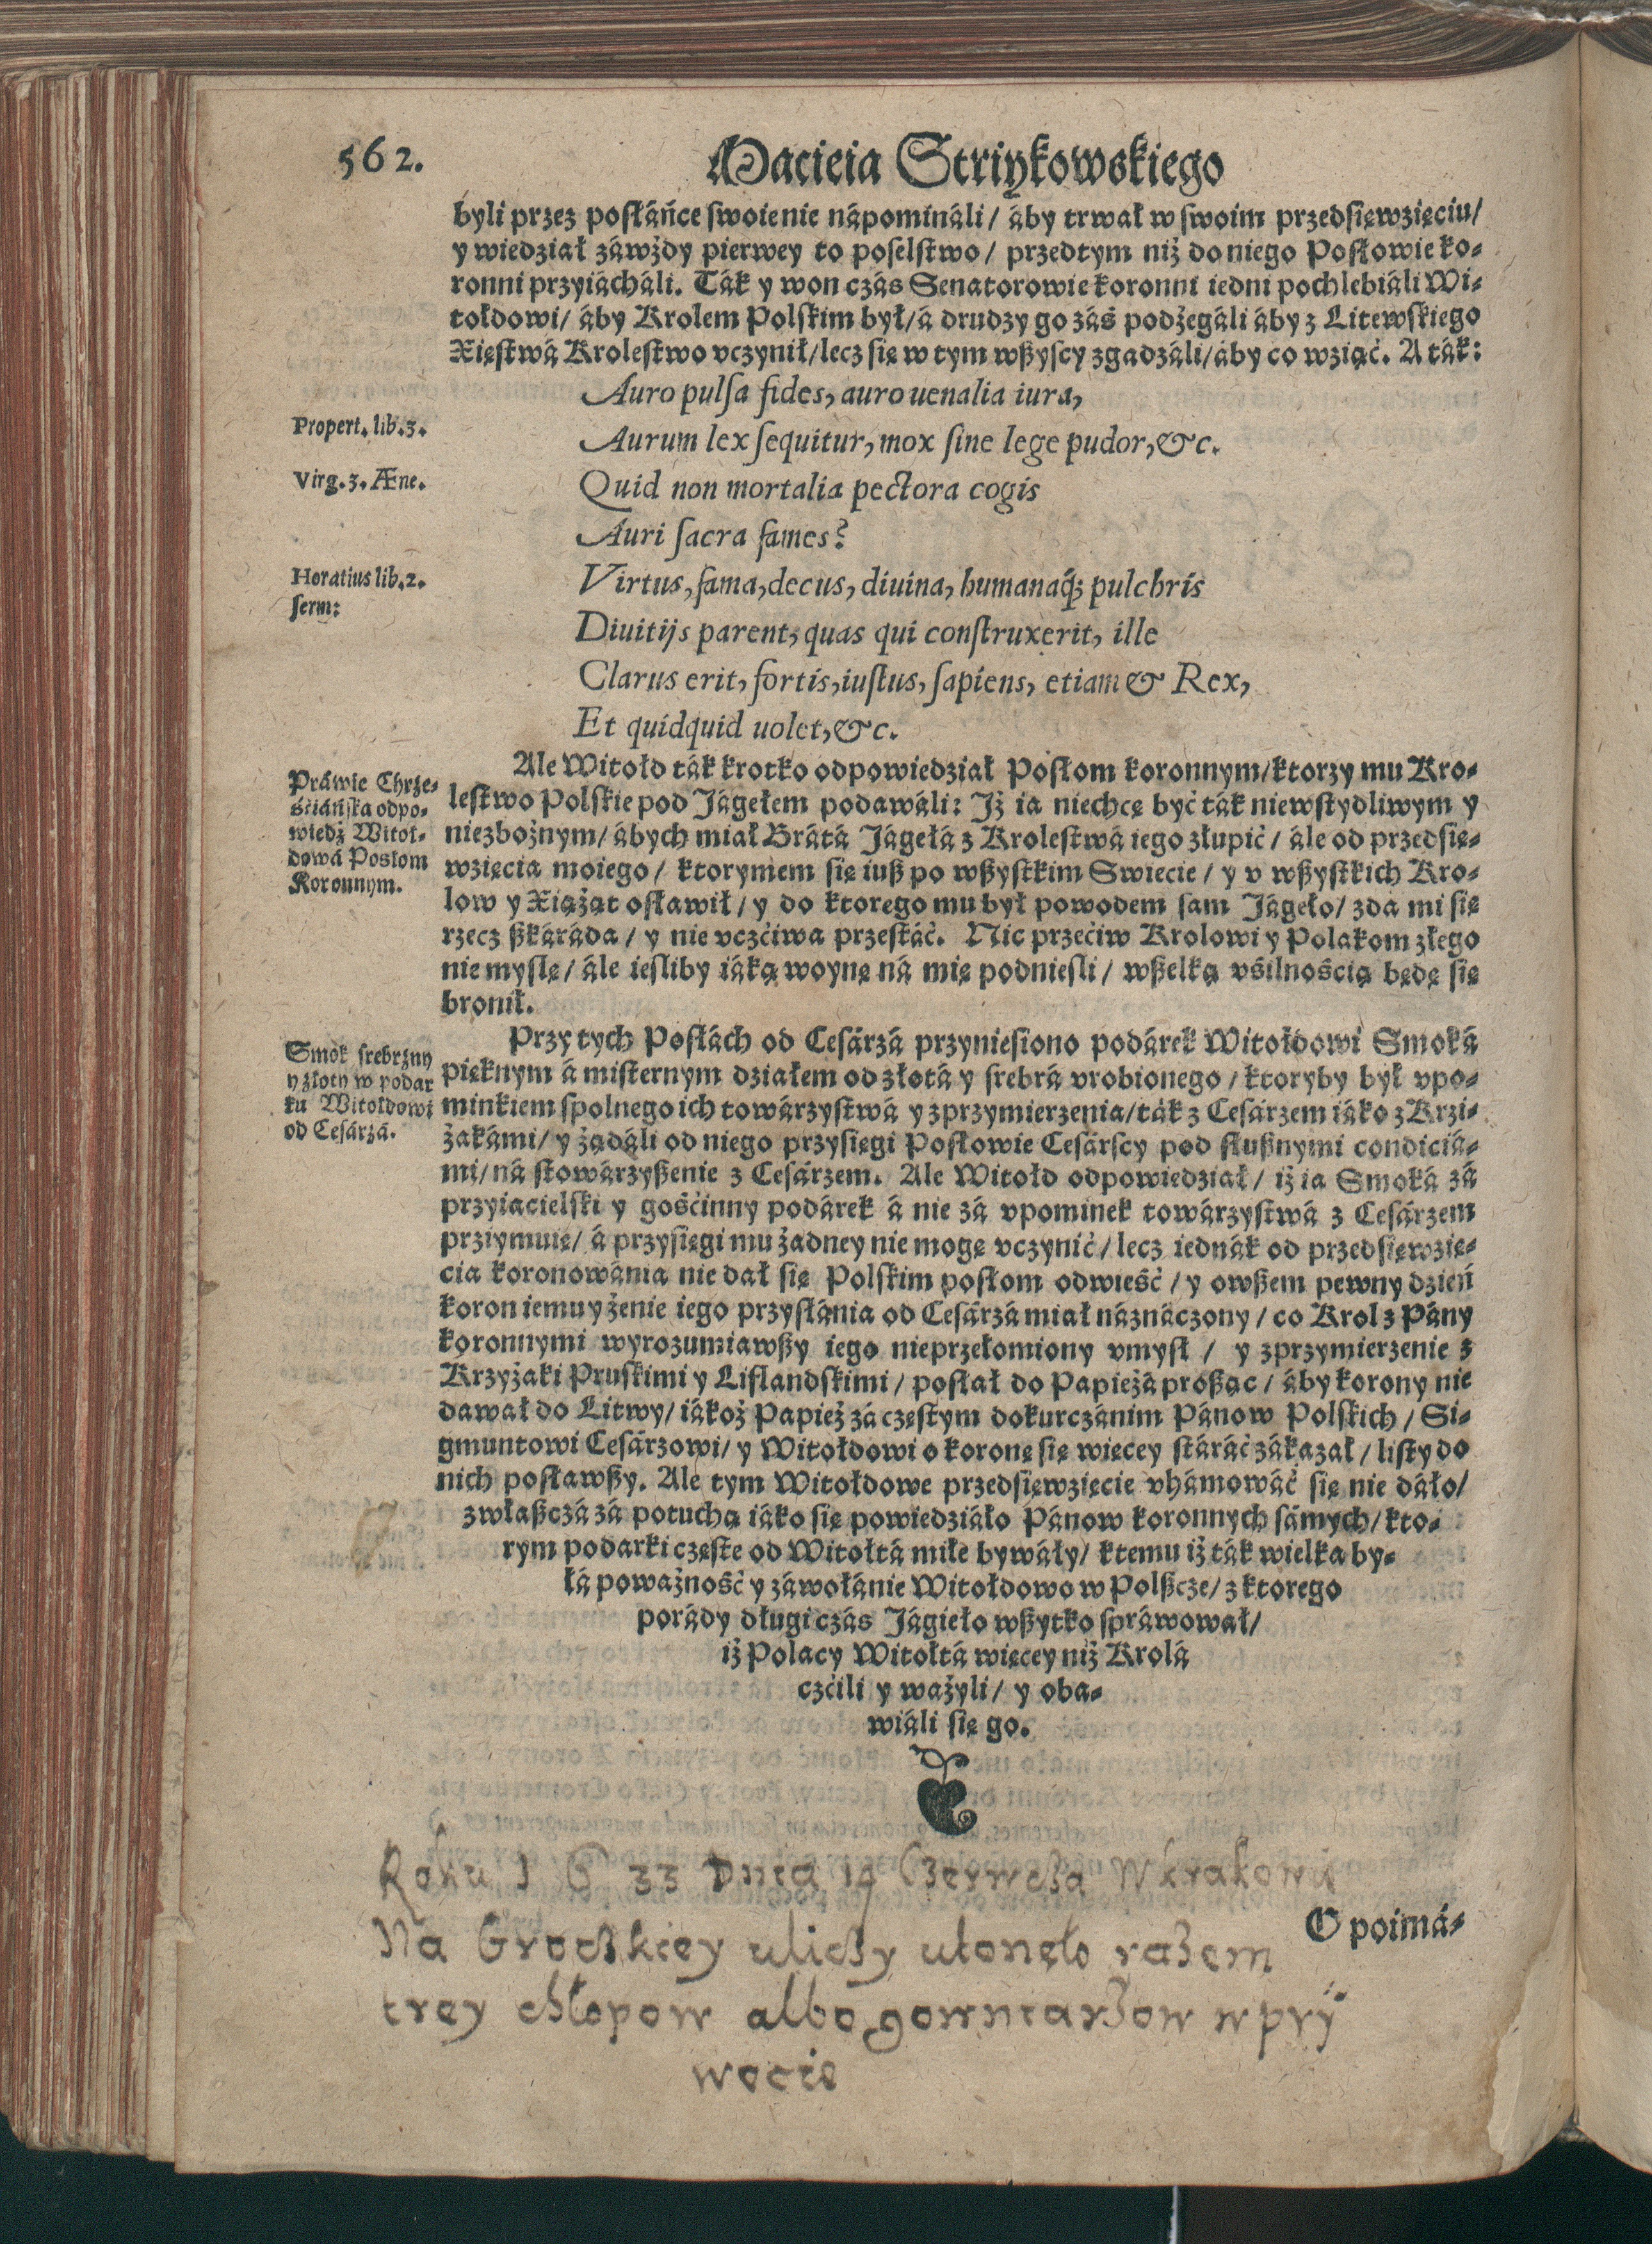 562.
Macieia Striykowskiego
byli przez posłáńce swoie nie nápomináli / áby trwał w swoim przedsięwzięciu /
y wiedział záwżdy pierwey to poselstwo / przedtym niż do niego Posłowie ko-
ronni przyiácháli. Ták y won czás Senatorowie koronni iedni pochlebiáli Wi-
tołdowi / áby Krolem Polskim był / á drudzy go záś podżegáli áby z Litewskiego
Xięstwá Krolestwo vczynił / lecz się w tym wßyscy zgadzáli / áby co wziąć. A ták:
Auro pulsa fides, auro uenalia iura,
Propert. lib. 3.
Aurum lex sequitur, mox sine lege pudor, &c.
Virg. 3. Æne.
Quid non mortalia pectora cogis
Auri sacra fames?
Horatius lib. 2.
serm:
Virtus, fama, decus, diuina, humanaq; pulchris
Diuitijs parent, quas qui construxerit, ille
Clarus erit, fortis, iustus, sapiens, etiam & Rex,
Et quidquid uolet, &c.
Práwie Chrze-
śćiáńska odpo-
wiedź Witoł-
dowá Posłom
Koronnym.
Ale Witołd ták krotko odpowiedział Posłom koronnym / ktorzy mu Kro-
lestwo Polskie pod Jágełem podawáli: Jż ia niechcę być ták niewstydliwym y
niezbożnym / ábych miał Brátá Jágełá z Krolestwá iego złupić / ále od przedsię-
wzięcia moiego / ktorymem się iuß po wßystkim Swiecie / y v wßystkich Kro-
low y Xiążąt osławił / y do ktorego mu był powodem sam Jágeło / zda mi się
rzecz ßkáráda / y nie vczćiwa przestáć. Nic przećiw Krolowi y Polakom złego
nie myslę / ále iesliby iáką woynę ná mię podniesli / wßelką vśilnością będę się
bronił.
Smok srebrzny
y złoty w podar
ku Witołdowi
od Cesárzá.
Przy tych Posłách od Cesárzá przyniesiono podárek Witołdowi Smoká
pięknym á misternym działem od złotá y srebrá vrobionego / ktoryby był vpo-
minkiem spolnego ich towárzystwá y zprzymierzenia / ták z Cesárzem iáko z Krzi-
żakámi / y żądáli od niego przysięgi Posłowie Cesárscy pod słußnymi condiciá-
mi / ná stowárzyßenie z Cesárzem. Ale Witołd odpowiedział / iż ia Smoká zá
przyiacielski y gośćinny podárek á nie zá vpominek towárzystwá z Cesárzem
prziymuię / á przysięgi mu żadney nie mogę vczynić / lecz iednák od przedsięwzię-
cia koronowánia nie dał się Polskim posłom odwieść / y owßem pewny dzień
koron iemu y żenie iego przysłánia od Cesárzá miał náznáczony / co Krol z Pány
koronnymi wyrozumiawßy iego nieprzełomiony vmysł / y zprzymierzenie z
Krzyżaki Pruskimi y Liflandskimi / posłał do Papieżá proßąc / áby korony nie
dawał do Litwy / iákoż Papież zá częstym dokurczánim Pánow Polskich / Si-
gmuntowi Cesárzowi / y Witołdowi o koronę się więcey stáráć zákazał / listy do
nich posławßy. Ale tym Witołdowe przedsięwzięcie vhámowáć się nie dáło /
zwłaßczá zá potuchą iáko się powiedziáło Pánow koronnych sámych / kto-
rym podarki częste od Witołtá miłe bywáły / ktemu iż ták wielka by-
łá poważność y záwołánie Witołdowo w Polßcze / z ktorego
porády długi czás Jágieło wßytko spráwował /
iż Polacy Witołtá więcey niż Krolá
czćili y ważyli / y oba-
wiáli się go.
Roku 1633 Dnia 19 Czerwcza W krakowie
O poimá-
Na Grodzkiey uliczy utonęło razem
trey chłopow albo gowniarzow w pry
wecie